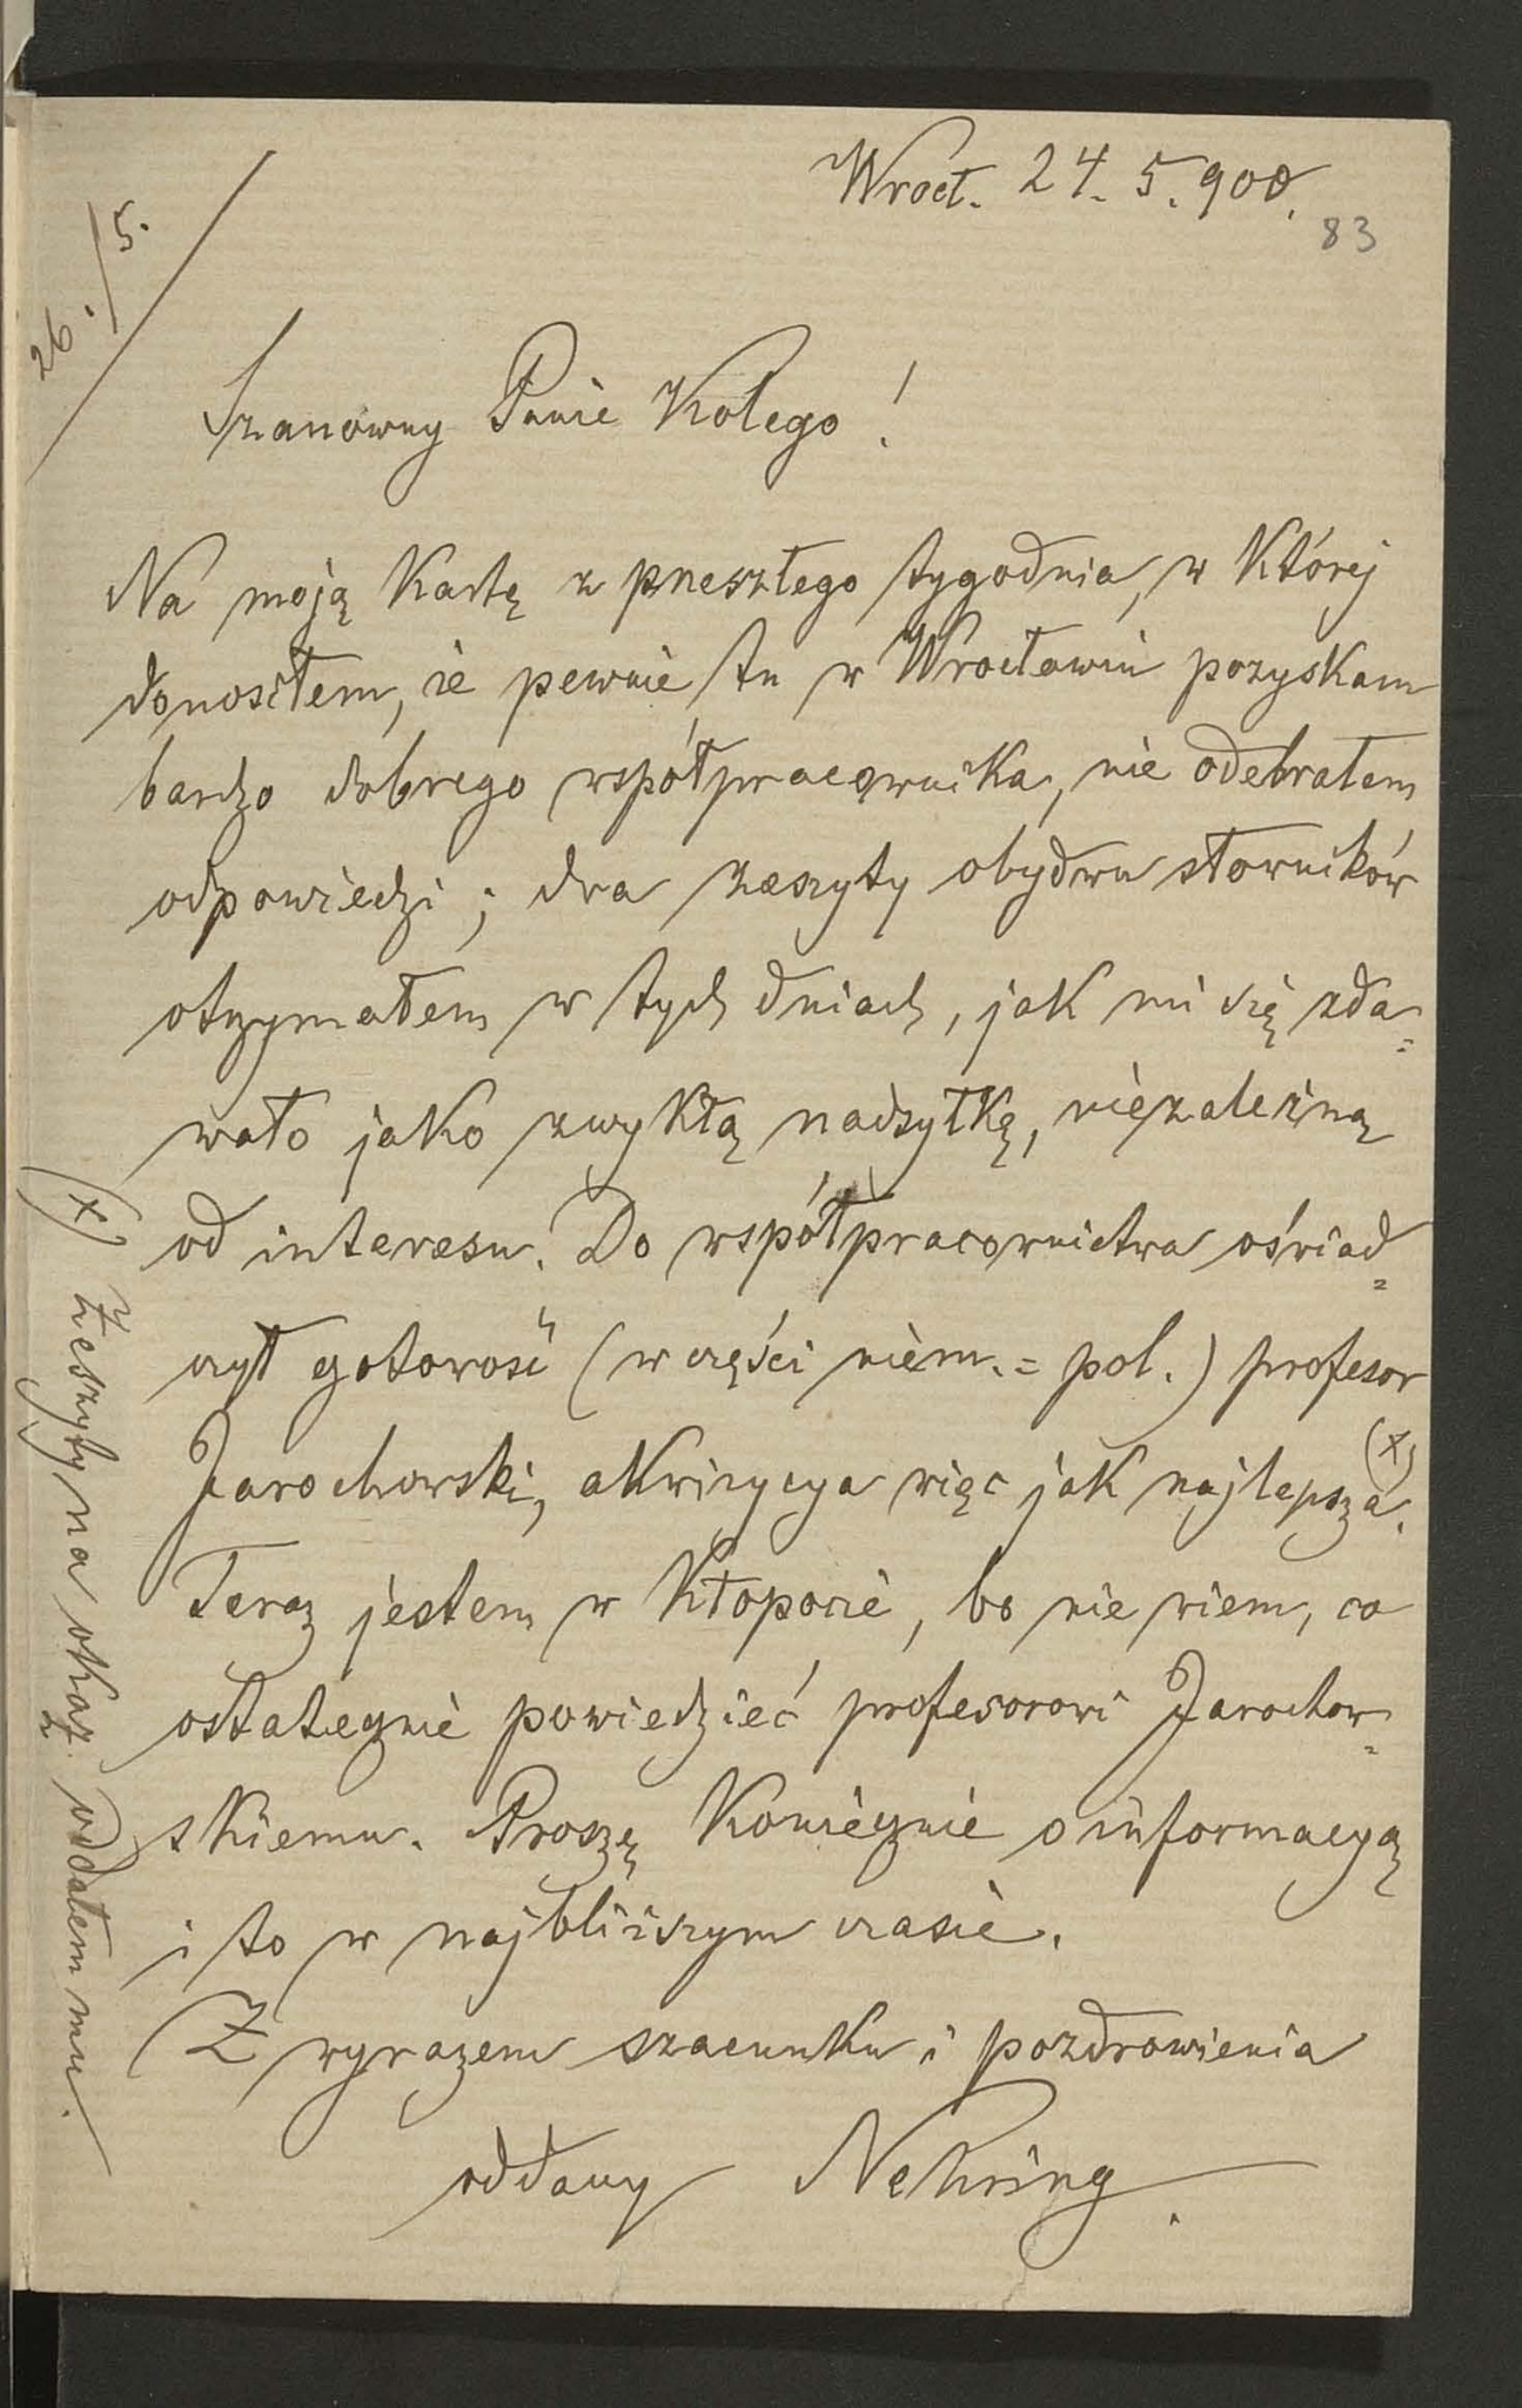 Wrocł. 24. 5. 900.
83
26./5.
Szanowny Panie Kolego!
Na moją kartę z przeszłego tygodnia, w której
donosiłem, że pewnie tu w Wrocławiu pozyskam
bardzo dobrego współpracownika, nie odebrałem
odpowiedzi; dwa zeszyty obydwu słowników
otrzymałem w tych dniach, jak mi się zda=
wało jako zwykłą nadsyłkę, niezależną
od interesu. Do współpracownictwa oświad=
czył gotowość (w części niem.=pol.) profesor
Jarochowski, akwizycya więc jak najlepsza. (x)
Teraz jestem w kłopocie, bo nie wiem, co
ostatecznie powiedzieć profesorowi Jarochow=
skiemu. Proszę koniecznie o informacyą
i to w najbliższym czasie.
Z wyrazem szacunku i pozdrowienia
oddany Nehring.
(x) Zeszyty na okaz oddałem mu.